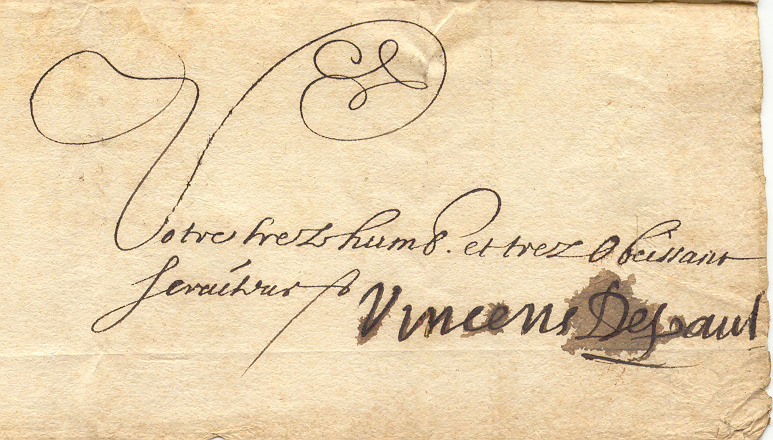 Votre trez humb. et trez obeissant
serviteur
Vincens Depaul